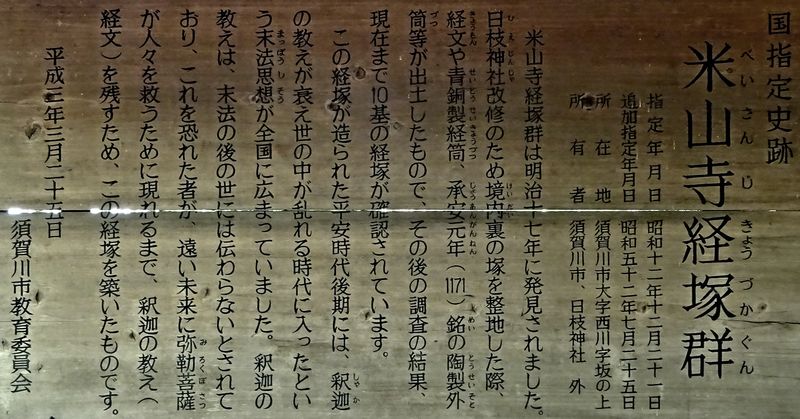 国指定史跡
米山寺経塚群
べいさんじきょうづかぐん
指定年月日　昭和十二年十二月二十一日
追加指定年月日　昭和五十二年七月二十五日
所在地　須賀川市大字西川字坂の上
所有者　須賀川市、日枝神社　外
米山寺経塚群は明治十七年に発見されました。
日枝神社改修のため境内裏の塚を整地した際、
経文や青銅製経筒　承安元年（1171）銘の陶製外
筒等が出土したもので、その後の調査の結果、
現在まで10基の経塚が確認されています。
この経塚が造られた平安時代後期には、釈迦
の教えが衰え世の中が乱れる時代に入ったとい
う末法思想が全国に広まっていました。釈迦の
教えは、末法の後の世には伝わらないとされて
おり、これを恐れた者が、遠い未来に弥勒菩薩
が人々を救うために現れるまで、釈迦の教え（
経文）を残すため、この経塚を築いたものです。
平成三年三月二十五日
須賀川市教育委員会